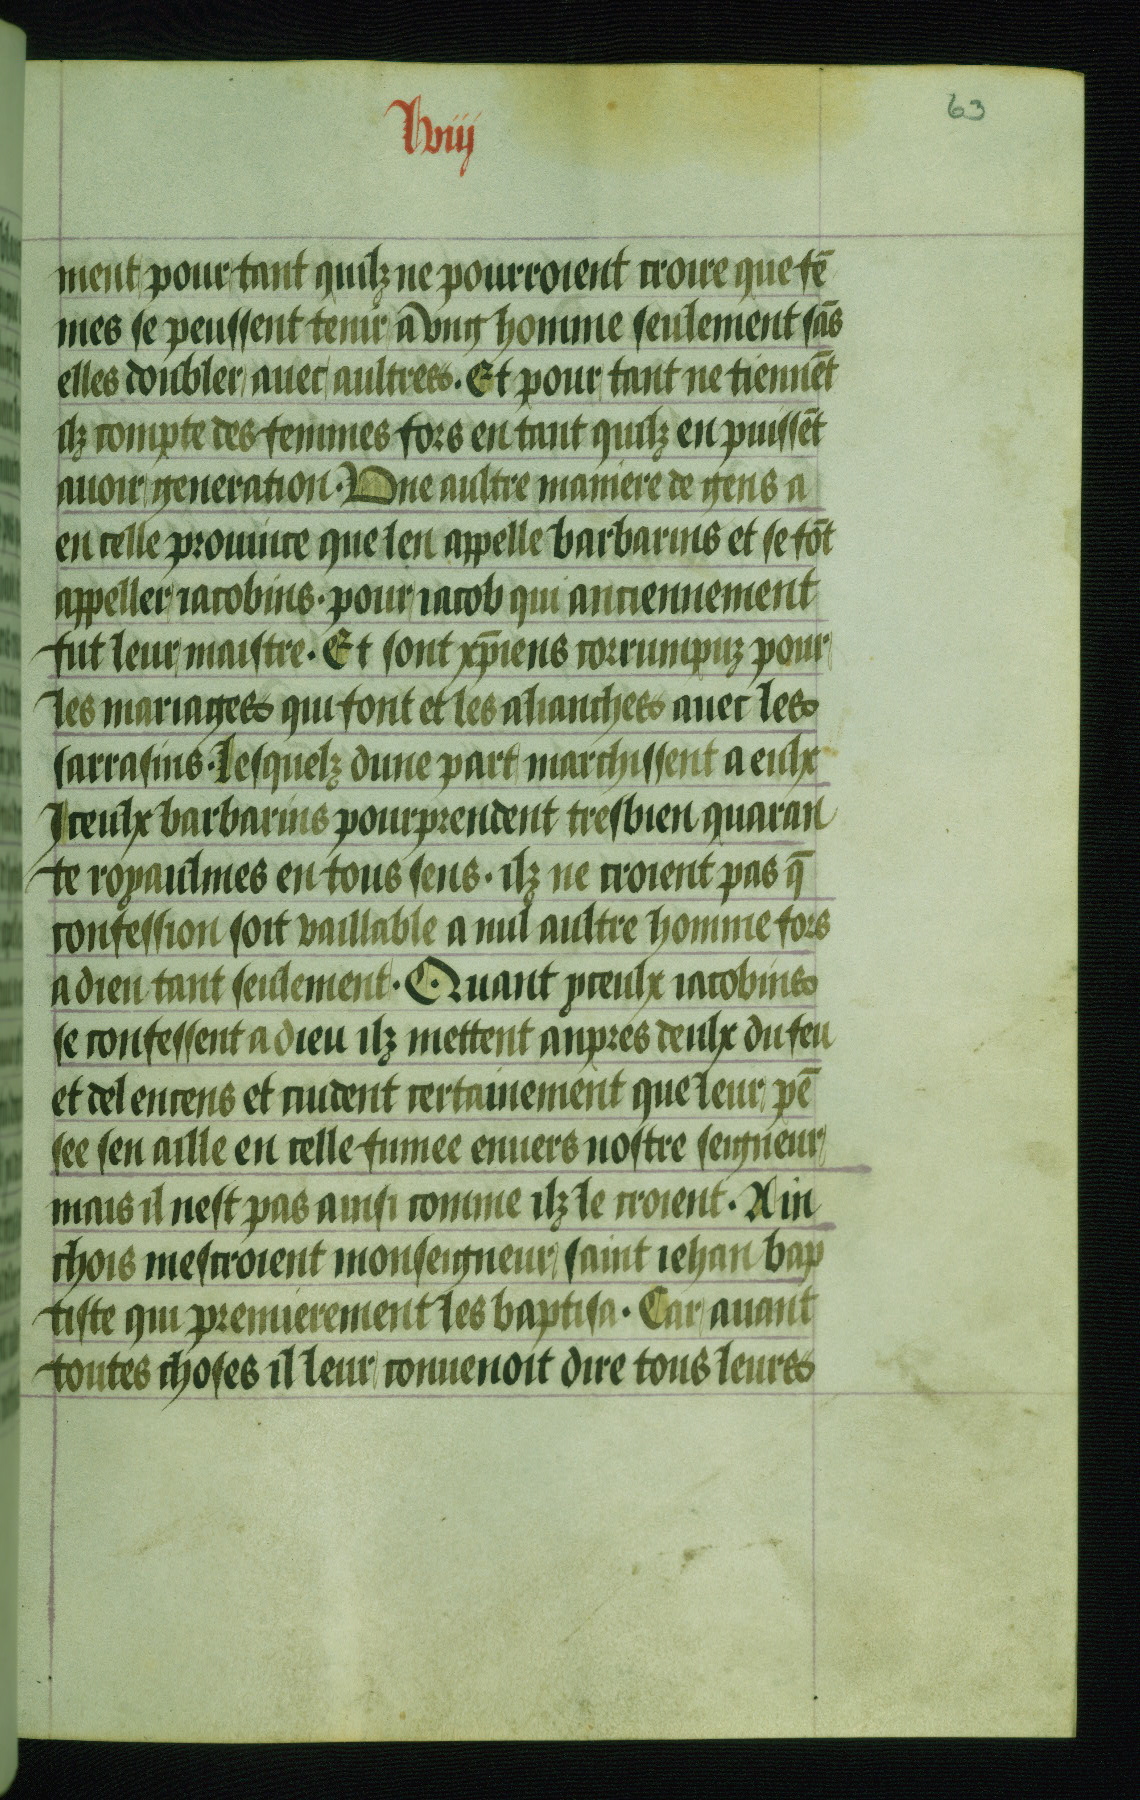 lviij
63
ment pour tant quilz ne pourroient croire que fē
mes se peussent tenir a vng homme seulement sās
elles doubler auec aultres. Et pour tant ne tiennēt
ilz compte des femmes fors en tant quilz en puissēt
auoir generation. Vne aultre maniere de gens a
en celle prouince que len appelle barbarins et se fōt
appeller iacobins. pour iacob qui anciennement
fut leur maistre. Et sont xp̄iens corrumpuz pour
les mariages qui font et les alianches auec les
sarrasins. Lesquelz dune part marchissent a eulx
Iceulx barbarins pourprendent tresbien quaran
te royaulmes en tous sens. ilz ne croient pas q̄
confession soit vaillable a nul aultre homme fors
a dieu tant seulement. Quant yceulx iacobins
se confessent a dieu ilz mettent aupres deulx du feu
et del encens et cuident certainement que leur pē
see sen aille en celle fumee enuers nostre seigneur
mais il nest pas ainsi comme ilz le croient. Ain
chois mescroient monseigneur saint iehan bap
tiste qui premierement les baptisa. Car auant
toutes choses il leur conuenoit dire tous leurs